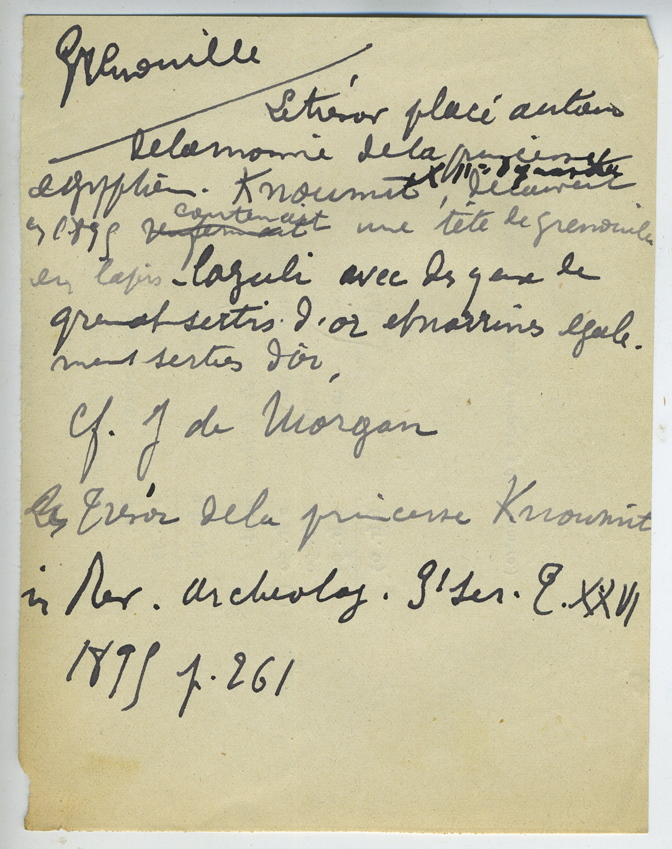 Grenouille
Le trésor placé autour
de la momie de la princesse
egyptien. Knoumit XII= dynastie, découvert
en 1895 contenait une tête de grenouille
en lapis-lazuli avec des yeux de
grenat sertis d'or et narines égale-
ment serties d'or,
Cf. J de Morgan
Les Trésor de la princesse Knoumit
in Rev. archeolog. 3e Ser. T. XXVI
1895 p. 261